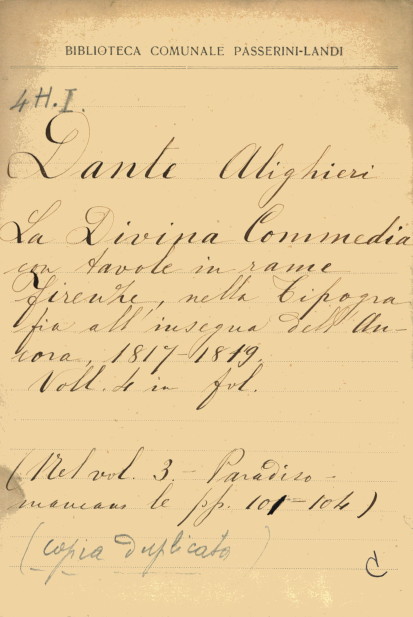 BIBLIOTECA COMUNALE PASSERINI-LANDI
4H.I.
Dante Alighieri
La Divina Commedia
con tavole in rame
Firenze, nella Tipogra
fia all'insegna dell'An-
cora, 1817-1819.
Voll. 4 in fol.
(Nel vol. 3 - Paradiso -
mancano le pp. 101-104)
(copia duplicato)
C